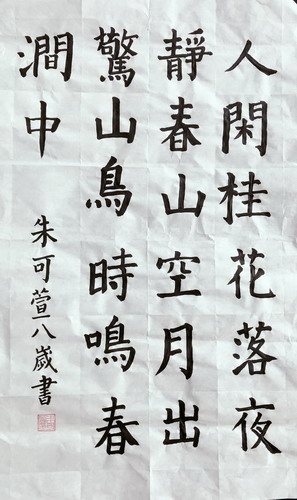 人閑桂花落夜
靜春山空月出
驚山鳥時鳴春
澗中
朱可萱八歲書